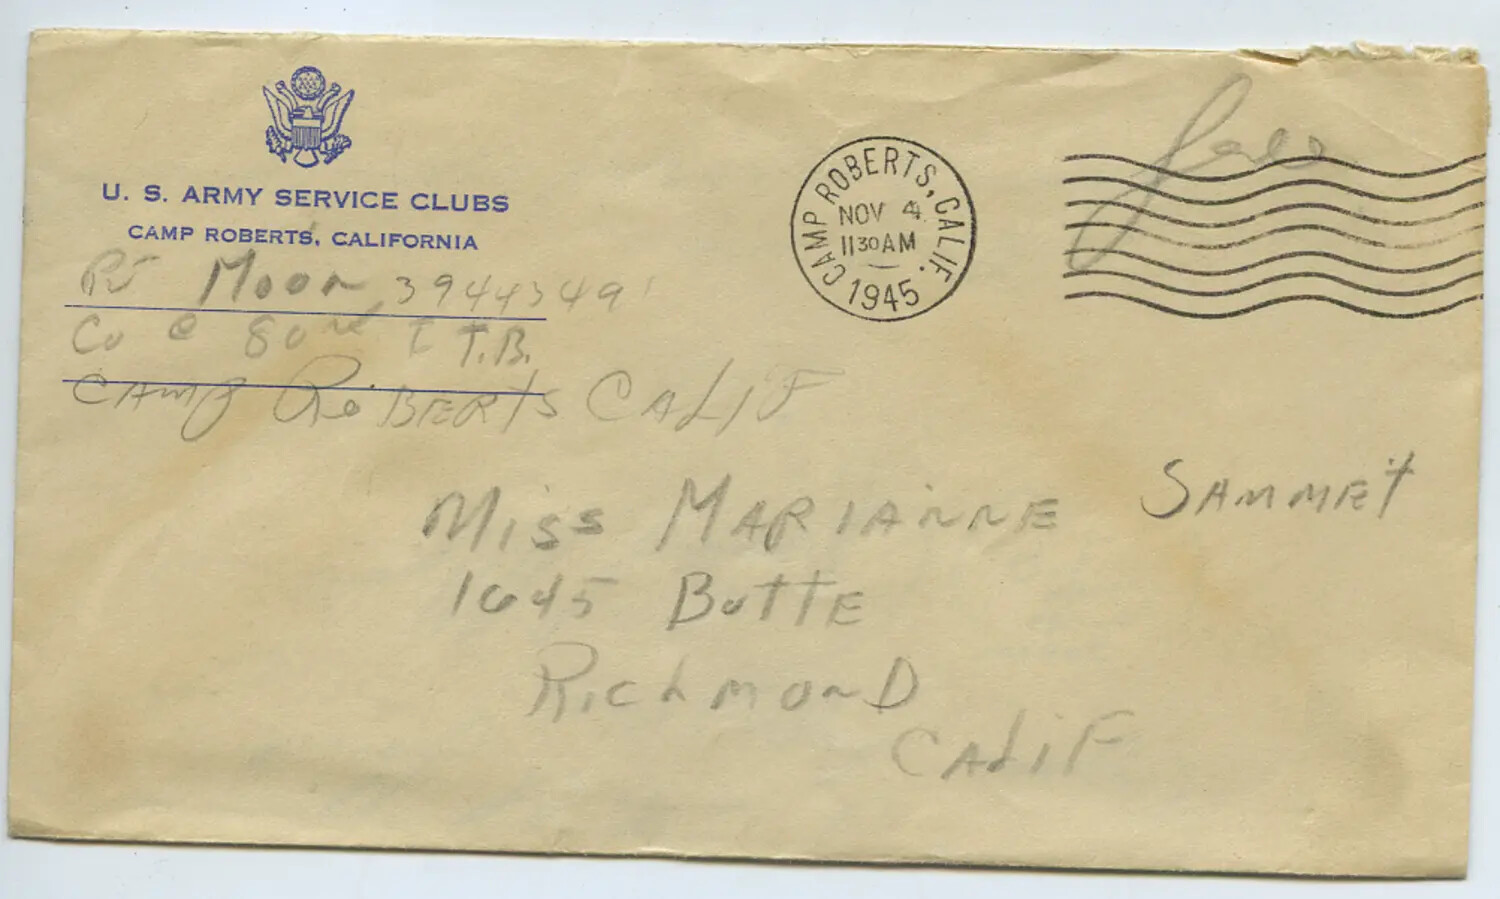 U. S. ARMY SERVICE CLUBS
CAMP ROBERTS, CALIFORNIA
Moon 39443491
Co C 80 T.B.
CAMP ROBERTS CALIF
CAMP ROBERTS, CALIF.
NOV 4
1130AM
1945
Free
Miss MARIANNE SAMMET
1645 ButtE
RichmonD
CALIF